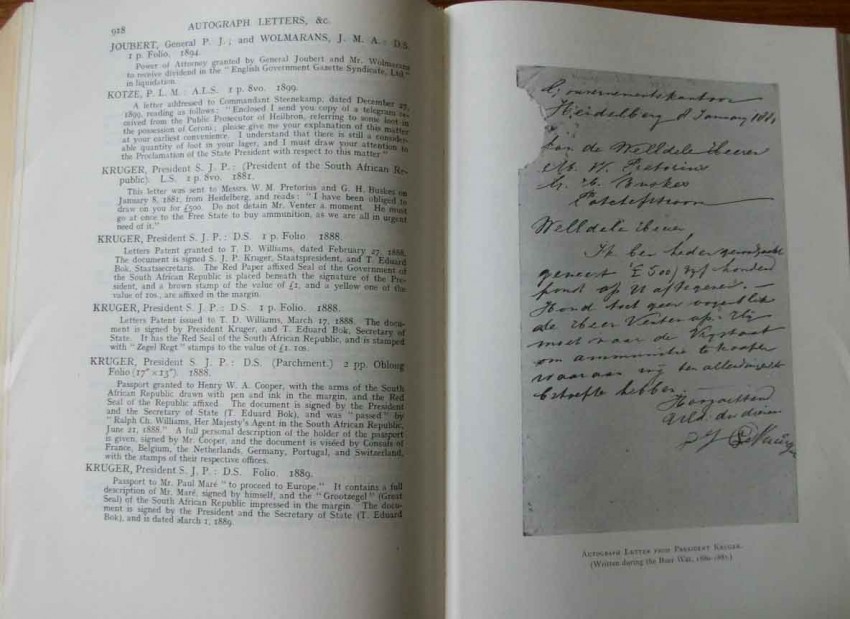 918
AUTOGRAPH LETTERS, &c.
JOUBERT, General P. J.; and WOLMARANS, J. M. A.: D.S.
1 p. Folio. 1894.
Power of Attorney granted by General Joubert and Mr. Wolmarans
to receive dividend in the "English Government Gazette Syndicate, Ltd."
in liquidation.
KOTZE, P. L. M.: A.L.S. 1 p. 8vo. 1899.
A letter addressed to Commandant Steenekamp, dated December 27,
1899, reading as follows: "Enclosed I send you copy of a telegram re-
ceived from the Public Prosecutor of Heilbron, referring to some loot in
the possession of Ceroni; please give me your explanation of this matter
at your earliest convenience. I understand that there is still a consider-
able quantity of loot in your lager, and I must draw your attention to
the Proclamation of the State President with respect to this matter"
KRUGER, President S. J. P.: (President of the South African Re-
public). L.S. 2 p. 8vo. 1881.
This letter was sent to Messrs. W. M. Pretorius and G. H. Buskes on
January 8, 1881, from Heidelberg, and reads: "I have been obliged to
draw on you for £500. Do not detain Mr. Venter a moment. He must
go at once to the Free State to buy ammunition, as we are all in urgent
need of it."
KRUGER, President S. J. P.: D.S. 1 p. Folio. 1888.
Letters Patent granted to T. D. Williams, dated February 27, 1888.
The document is signed S. J. P. Kruger, Staatspresident, and T. Eduard
Bok, Staatsecretaris. The Red Paper affixed Seal of the Government of
the South African Republic is placed beneath the signature of the Pre-
sident, and a brown stamp of the value of £1, and a yellow one of the
value of 10s., are affixed in the margin.
KRUGER, President S. J. P.: D.S. 1 p. Folio. 1888.
Letters Patent issued to T. D. Williams, March 17, 1888. The docu-
ment is signed by President Kruger, and T. Eduard Bok, Secretary of
State. It has the Red Seal of the South African Republic, and is stamped
with "Zegel Regt" stamps to the value of £1. 10s.
KRUGER, President S. J. P.: D.S. (Parchment.) 2 pp. Oblong
Folio (17"×13"). 1888.
Passport granted to Henry W. A. Cooper, with the arms of the South
African Republic drawn with pen and ink in the margin, and the Red
Seal of the Republic affixed. The document is signed by the President
and the Secretary of State (T. Eduard Bok), and was "passed" by
"Ralph Ch. Williams, Her Majesty's Agent in the South African Republic,
June 21, 1888." A full personal description of the holder of the passport
is given, signed by Mr. Cooper, and the document is viséed by Consuls of
France, Belgium, the Netherlands, Germany, Portugal, and Switzerland,
with the stamps of their respective offices.
KRUGER, President S. J. P.: D.S. Folio. 1889.
Passport to Mr. Paul Maré "to proceed to Europe." It contains a full
description of Mr. Maré, signed by himself, and the "Grootzegel" (Great
Seal) of the South African Republic impressed in the margin. The docu-
ment is signed by the President and the Secretary of State (T. Eduard
Bok), and is dated March 1, 1889.
Gouvernementskantoor
Heidelberg 8 January 1881
Aan de Weledele Heeren
M. W. Pretorius
Buskes
Potchefstroom
Weledele Heeren,
Ik ben heden
geweest £500
pond op U
Houd toch geen oogenblik
de Heer Venter op. Hij
moet naar de Vrystaat
om ammunitie te koopen
waaraan wij ten
behoefte hebben.
AUTOGRAPH LETTER FROM PRESIDENT KRUGER.
(Written during the Boer War, 1880-1881.)